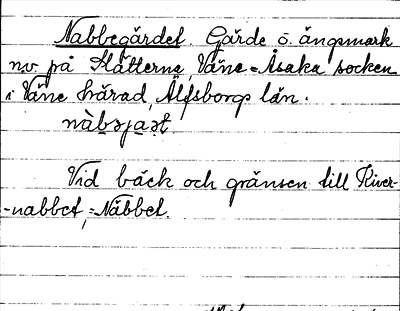 Nabbegärdet. Gärde o. ängsmark
nv på Slätterna, Väne-Åsaka socken
i Väne härad, Älfsborgs län.
Vid bäck och gränsen till Kiver-
-nabbet, = Näbbet.